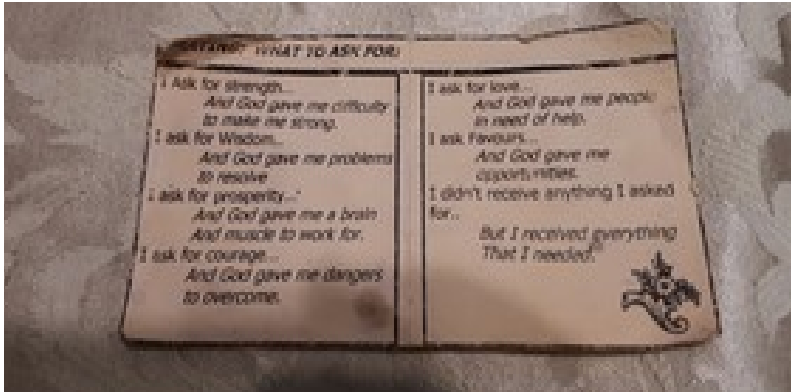 WHAT TO ASK FOR:
I Ask for strength...
And God gave me difficulty
to make me strong.
I ask for Wisdom...
And God gave me problems
to resolve
I ask for prosperity...
And God gave me a brain
And muscle to work for.
I ask for courage...
And God gave me dangers
to overcome.
I ask for love...
And God gave me people
in need of help.
I ask Favours...
And God gave me
opportunities.
I didn't receive anything I asked
for..
But I received everything
That I needed.